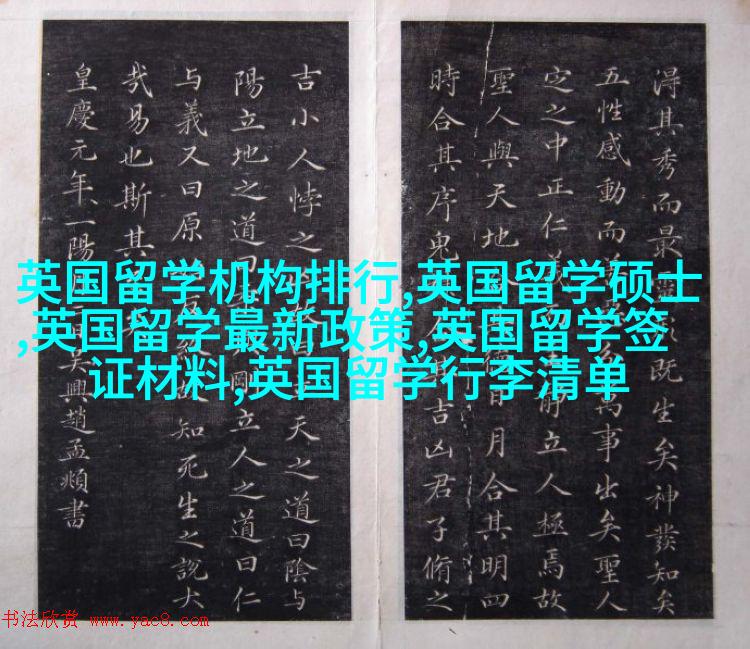 英国留学机构排行,英国留学硕士
,英国留学最新政策,英国留学签
证材料,英国留学行李清单
淂其秀而最既生矣神發知矣
五性感動而萬事出矣聖人
定之中正仁義立人極焉故
聖人與天地德日月合其明四
時合其序鬼吉凶君子脩之
吉小人悖之天之道曰陰与
陽立地之道曰剛立人之道曰仁
与義又曰原反知死生之說大
哉易也斯其
皇慶元年一陽月日吴興趙孟頫書
书法欣赏 www.yac8.com